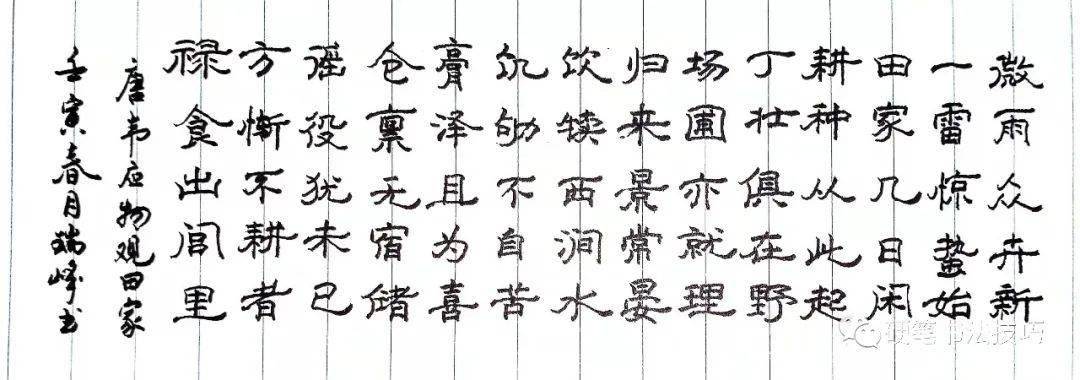 微雨众卉新
一雷惊蛰始
田家几日闲
耕种从此起
丁壮俱在野
场圃亦就理
归来景常晏
饮犊西涧水
饥劬不自苦
膏泽且为喜
仓禀无宿储
徭役犹未已
方惭不耕者
禄食出闾里
唐韦应物观田家
壬寅春月瑞峰书
硬笔书法技巧